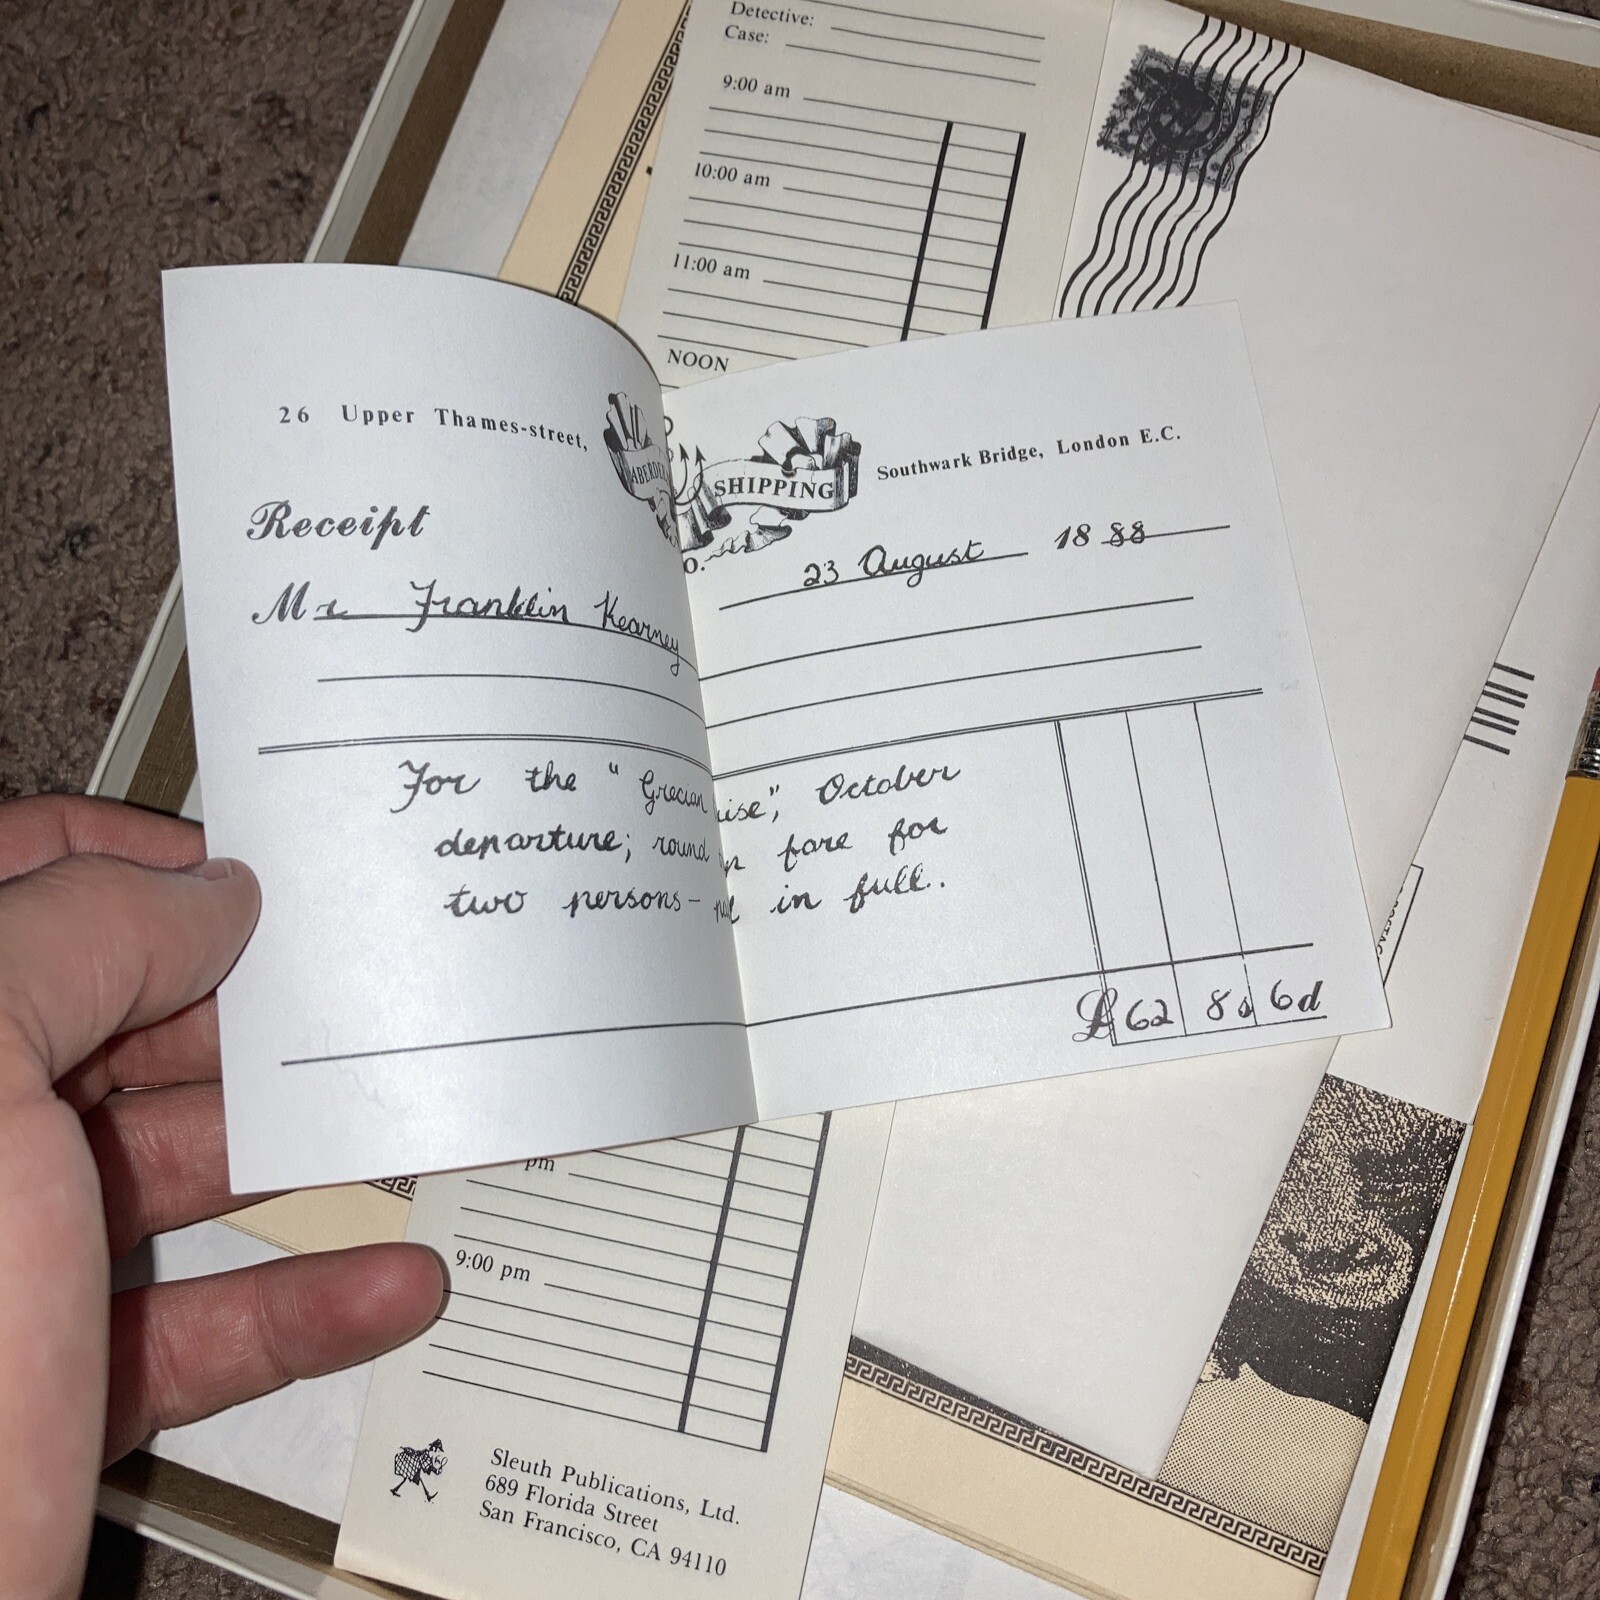 Detective:
Case:
9:00 am
10:00 am
11:00 am
NOON
26 Upper Thames-street,
SHIPPING
Southwark Bridge, London E.C.
Receipt
23 August 18 88
Mr Franklin Kearney
For the "Grecian uise", October
departure; round fare for
two persons- in full.
£ 62 8s 6d
pm
9:00 pm
Sleuth Publications, Ltd.
689 Florida Street
San Francisco, CA 94110